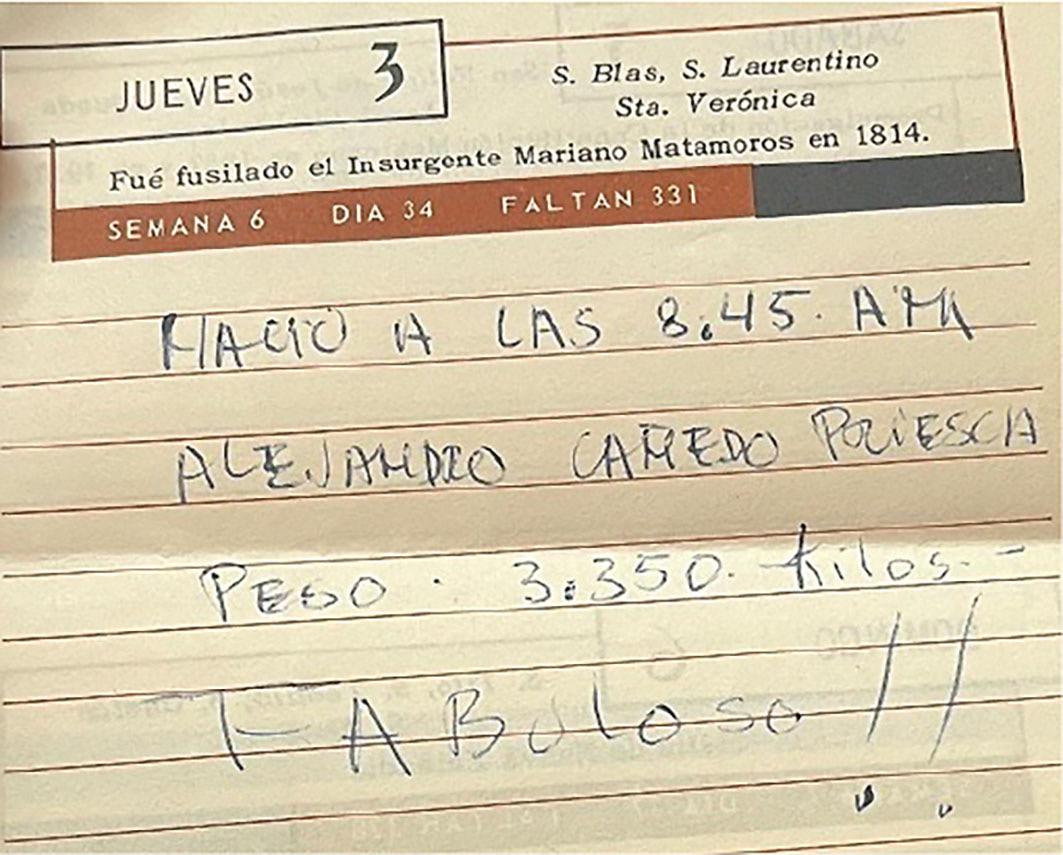 JUEVES 3
S. Blas, S. Laurentino
Sta. Verónica
Fué fusilado el Insurgente Mariano Matamoros en 1814.
SEMANA 6 DIA 34 FALTAN 331
NACIO A LAS 8:45. AM
ALEJANDRO CAÑEDO
PESO. 3:350. Kilos.-
FABULOSO!!